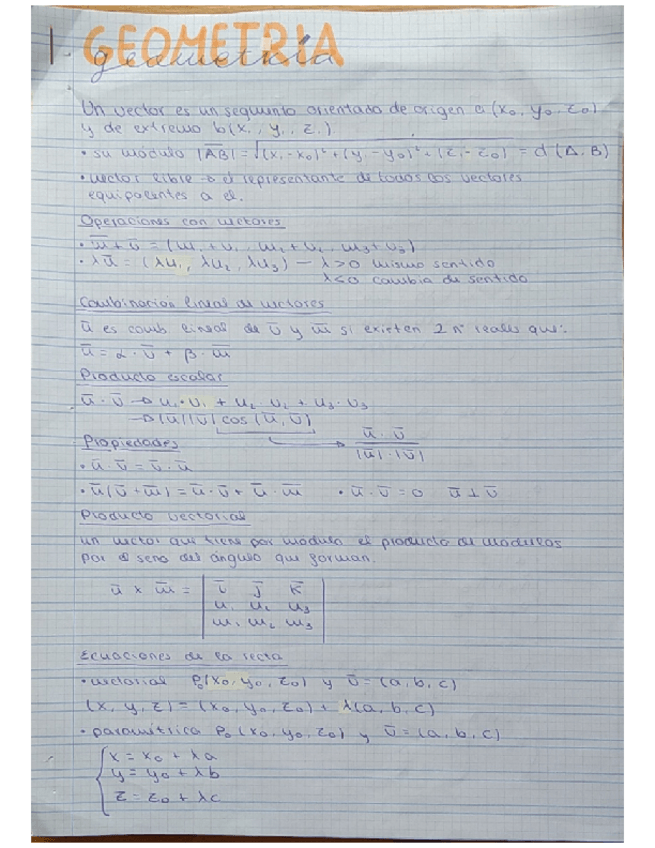 1. GEOMETRIA
geometría
Un vector es un segmento orientado de origen a (x₀, y₀, z₀)
y de extremo b(x₁, y₁, z₁)
• su módulo |AB| = √(x₁-x₀)²+(y₁-y₀)²+(z₁-z₀)² = d(A,B)
• vector libre → el representante de todos los vectores
equipolentes a el.
Operaciones con vectores
• w̄+v̄ = (w₁+v₁, w₂+v₂, w₃+v₃)
• λū = (λu₁, λu₂, λu₃) — λ>0 mismo sentido
λ<0 cambia de sentido
Combinación lineal de vectores
ū es comb lineal de v̄ y w̄ si existen 2 nº reales que:
ū = α·v̄ + β·w̄
Producto escalar
ū·v̄ → u₁·v₁ + u₂·v₂ + u₃·v₃
→ |ū||v̄| cos (ū, v̄)
ū·v̄
|ū|·|v̄|
Propiedades
• ū·v̄ = v̄·ū
• ū(v̄+w̄) = ū·v̄ + ū·w̄ • ū·v̄ = 0 ū⊥v̄
Producto vectorial
un vector que tiene por modulo el producto de modulos
por el seno del ángulo que forman.
ū × w̄ = | ī j̄ k̄
u₁ u₂ u₃
w₁ w₂ w₃ |
Ecuaciones de la recta
• vectorial P₀(x₀, y₀, z₀) y v̄ = (a, b, c)
(x, y, z) = (x₀, y₀, z₀) + λ(a, b, c)
• paramétrica P₀ (x₀, y₀, z₀) y v̄ = (a, b, c)
x = x₀ + λa
y = y₀ + λb
z = z₀ + λc